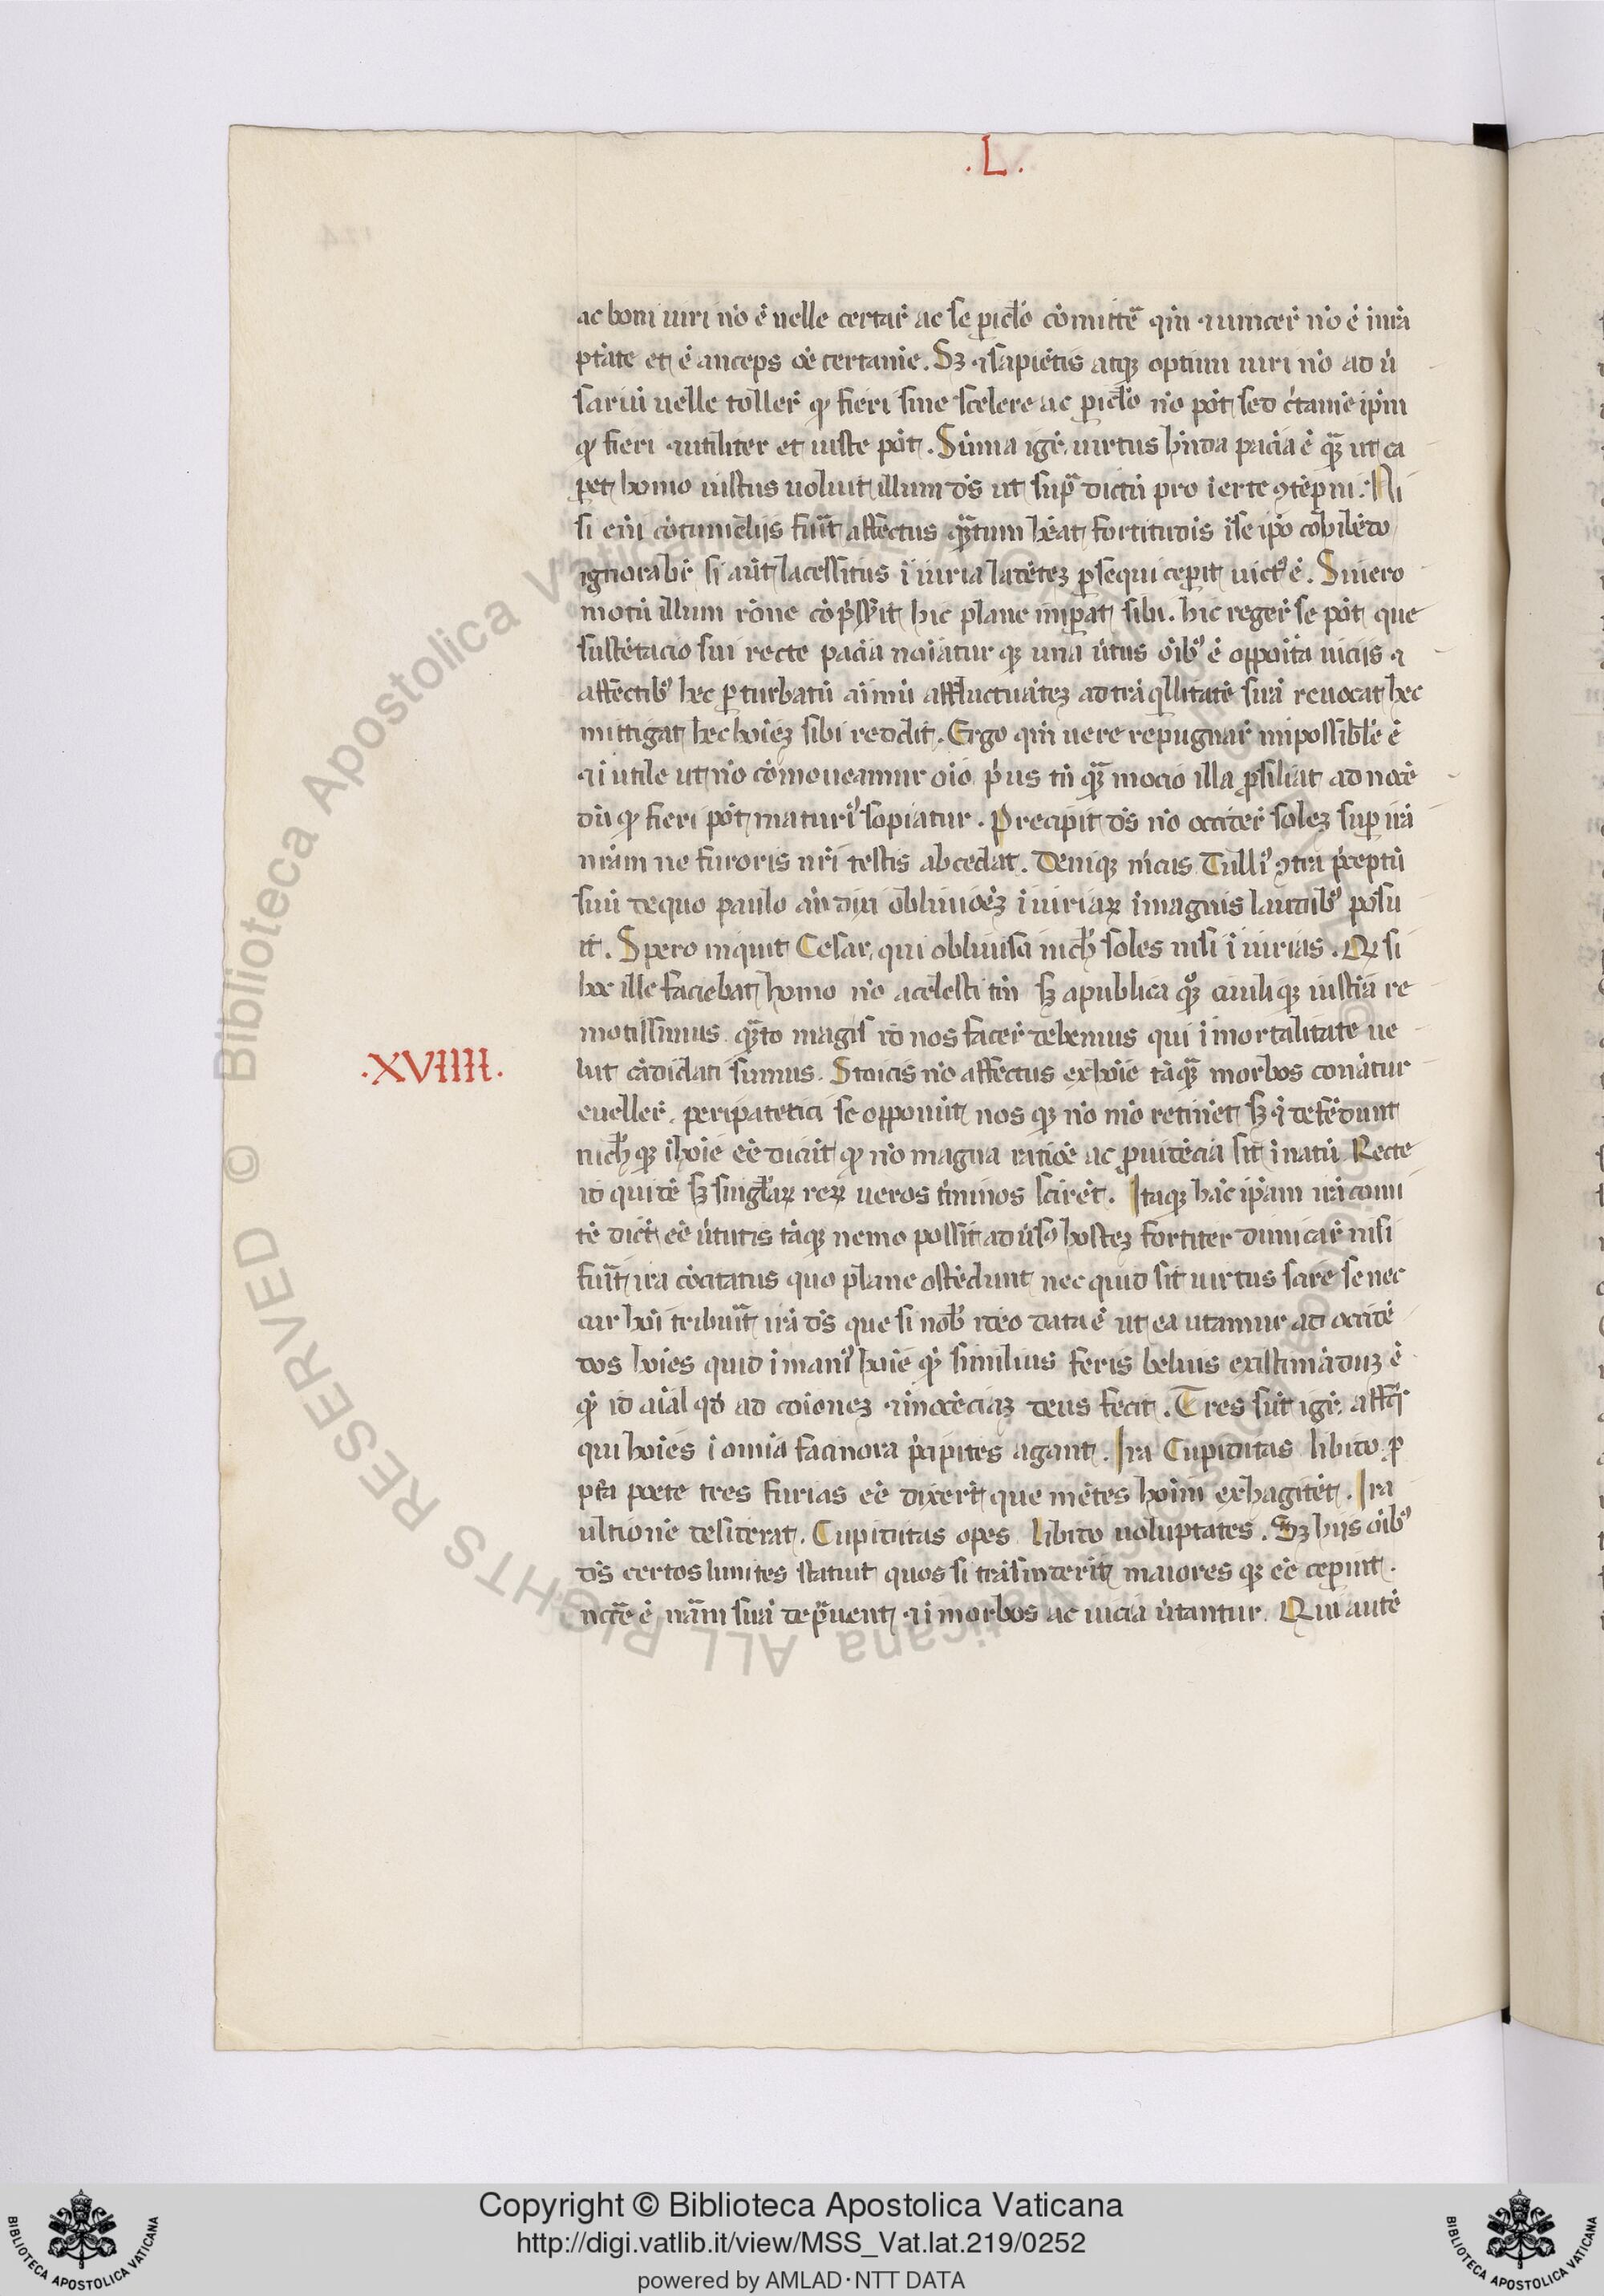 .L.
ac boni uiri nō ē uelle certar̄ ac se piclo cōmittē qm̄ ⁊ uincer̄ nō ē in nr̄a
ptāte et ē anceps oē certamē. Sꝫ ⁊ sapiētis atqꝫ optimi uiri nō ad ū
sariū uelle toller̄ qḥ fieri sine scelere ac piclo nō pōt sed c̄tamē ip̄m
qḥ fieri ⁊ utiliter et iuste pōt. Sūma igr̄ uirtus hn̄da paciā ē quā ut ca
pet homo iustus uoluit illum dṡ ut supra dictū pro ierte ꝯtēpni. Ni
si eni cōtumeliis fuit affectus quātum heat fortitudīs ī se ipo cohibēdo
ignorabr̄ si aūt lacessitus ī iuria ledētez psequi ceperit uictꝰ ē. Sin uero
motū illum rōne cōp̄sit hic plane imperat sibi. hic reger̄ se pōt que
sustētacio sui recte paciā noīatur qꝫ una ūtus oībꝰ ē oppoīta uiciis ⁊
affectibꝰ hec p turbatū aīmū affluctuātez ad trāqllitatē suā reuocat hec
mittigat hec hoiēz sibi reddit. Ergo qm̄ uere repugnar̄ impossibile ē
⁊ ī utile ut nō cōmoueamur oīo pus tn̄ quā mocio illa psiliat ad nocē
dū qḥ fieri pōt maturiꝰ sopiatur. Precipit dṡ nō occider̄ solez sup irā
nrām ne furoris nrī testis abcedat. Deniqꝫ mcus Tulliꝰ ꝯtra p̄ceptū
suū de quo paulo an̄ dixi obliuioēz ī iuriaꝝ ī magnis laudibꝰ posu
it. Spero inquit Cesar qui obliuisci nichil soles nisi ī iurias. Qḥ si
hoc ille faciebat homo nō a celesti tm̄ sꝫ a publica qꝫ ciuiliqꝫ iusticiā re
motissimus quāto magis id nos facer̄ debemus qui ī mortalitate ue
.XVIIII.
lut cādidati sumus. Stoicis nō affectus ex hoīe tāquā morbos conātur
eueller̄. peripatetici se opponūt nos qꝫ nō mō retinēt sꝫ ⁊ defēdunt
nichil qꝫ ī hoīe eē dicūt qḥ nō magna ratiōe ac prouidēcia sit ī natū Recte
id quidē sꝫ singlaꝝ reꝝ ueros t̄minos scirēt. Itaqꝫ hāc ip̄am irā comi
tē dicūt eē ūtutis tāqꝫ nemo possit aduso hostez fortiter dimicar̄ nisi
fuit ira cōcitatus quo plane ostēdunt nec quid sit uirtus scire se nec
cur hoī tribuit irā dṡ que si nob ideo data ē ut ea utamur ad occidē
dos hoīes quid ī maniꝰ hoīe qḥ similius feris beluis existimāduz ē
qḥ id aīal qd ad coīonez ⁊ īnocēciaz deus fecit. Tres sūt igr̄ affcus
qui hoīes ī omīā facinora p̄cipites agant. Ira Cupiditas libido p
ptā poete tres furias eē dixerūt que mētes hoīm exhagitēt. Ira
ultionē desiderat. Cupiditas opes libido uoluptates. Sꝫ hiis oībꝰ
dṡ certos limites statuit quos si trāsindērit maiores qꝫ eē ceperint.
ncē ē nām suā deprauent ⁊ ī morbos ac uicia ūtantur. Qui autē
Copyright © Biblioteca Apostolica Vaticana
http://digi.vatlib.it/view/MSS_Vat.lat.219/0252
powered by AMLAD·NTT DATA